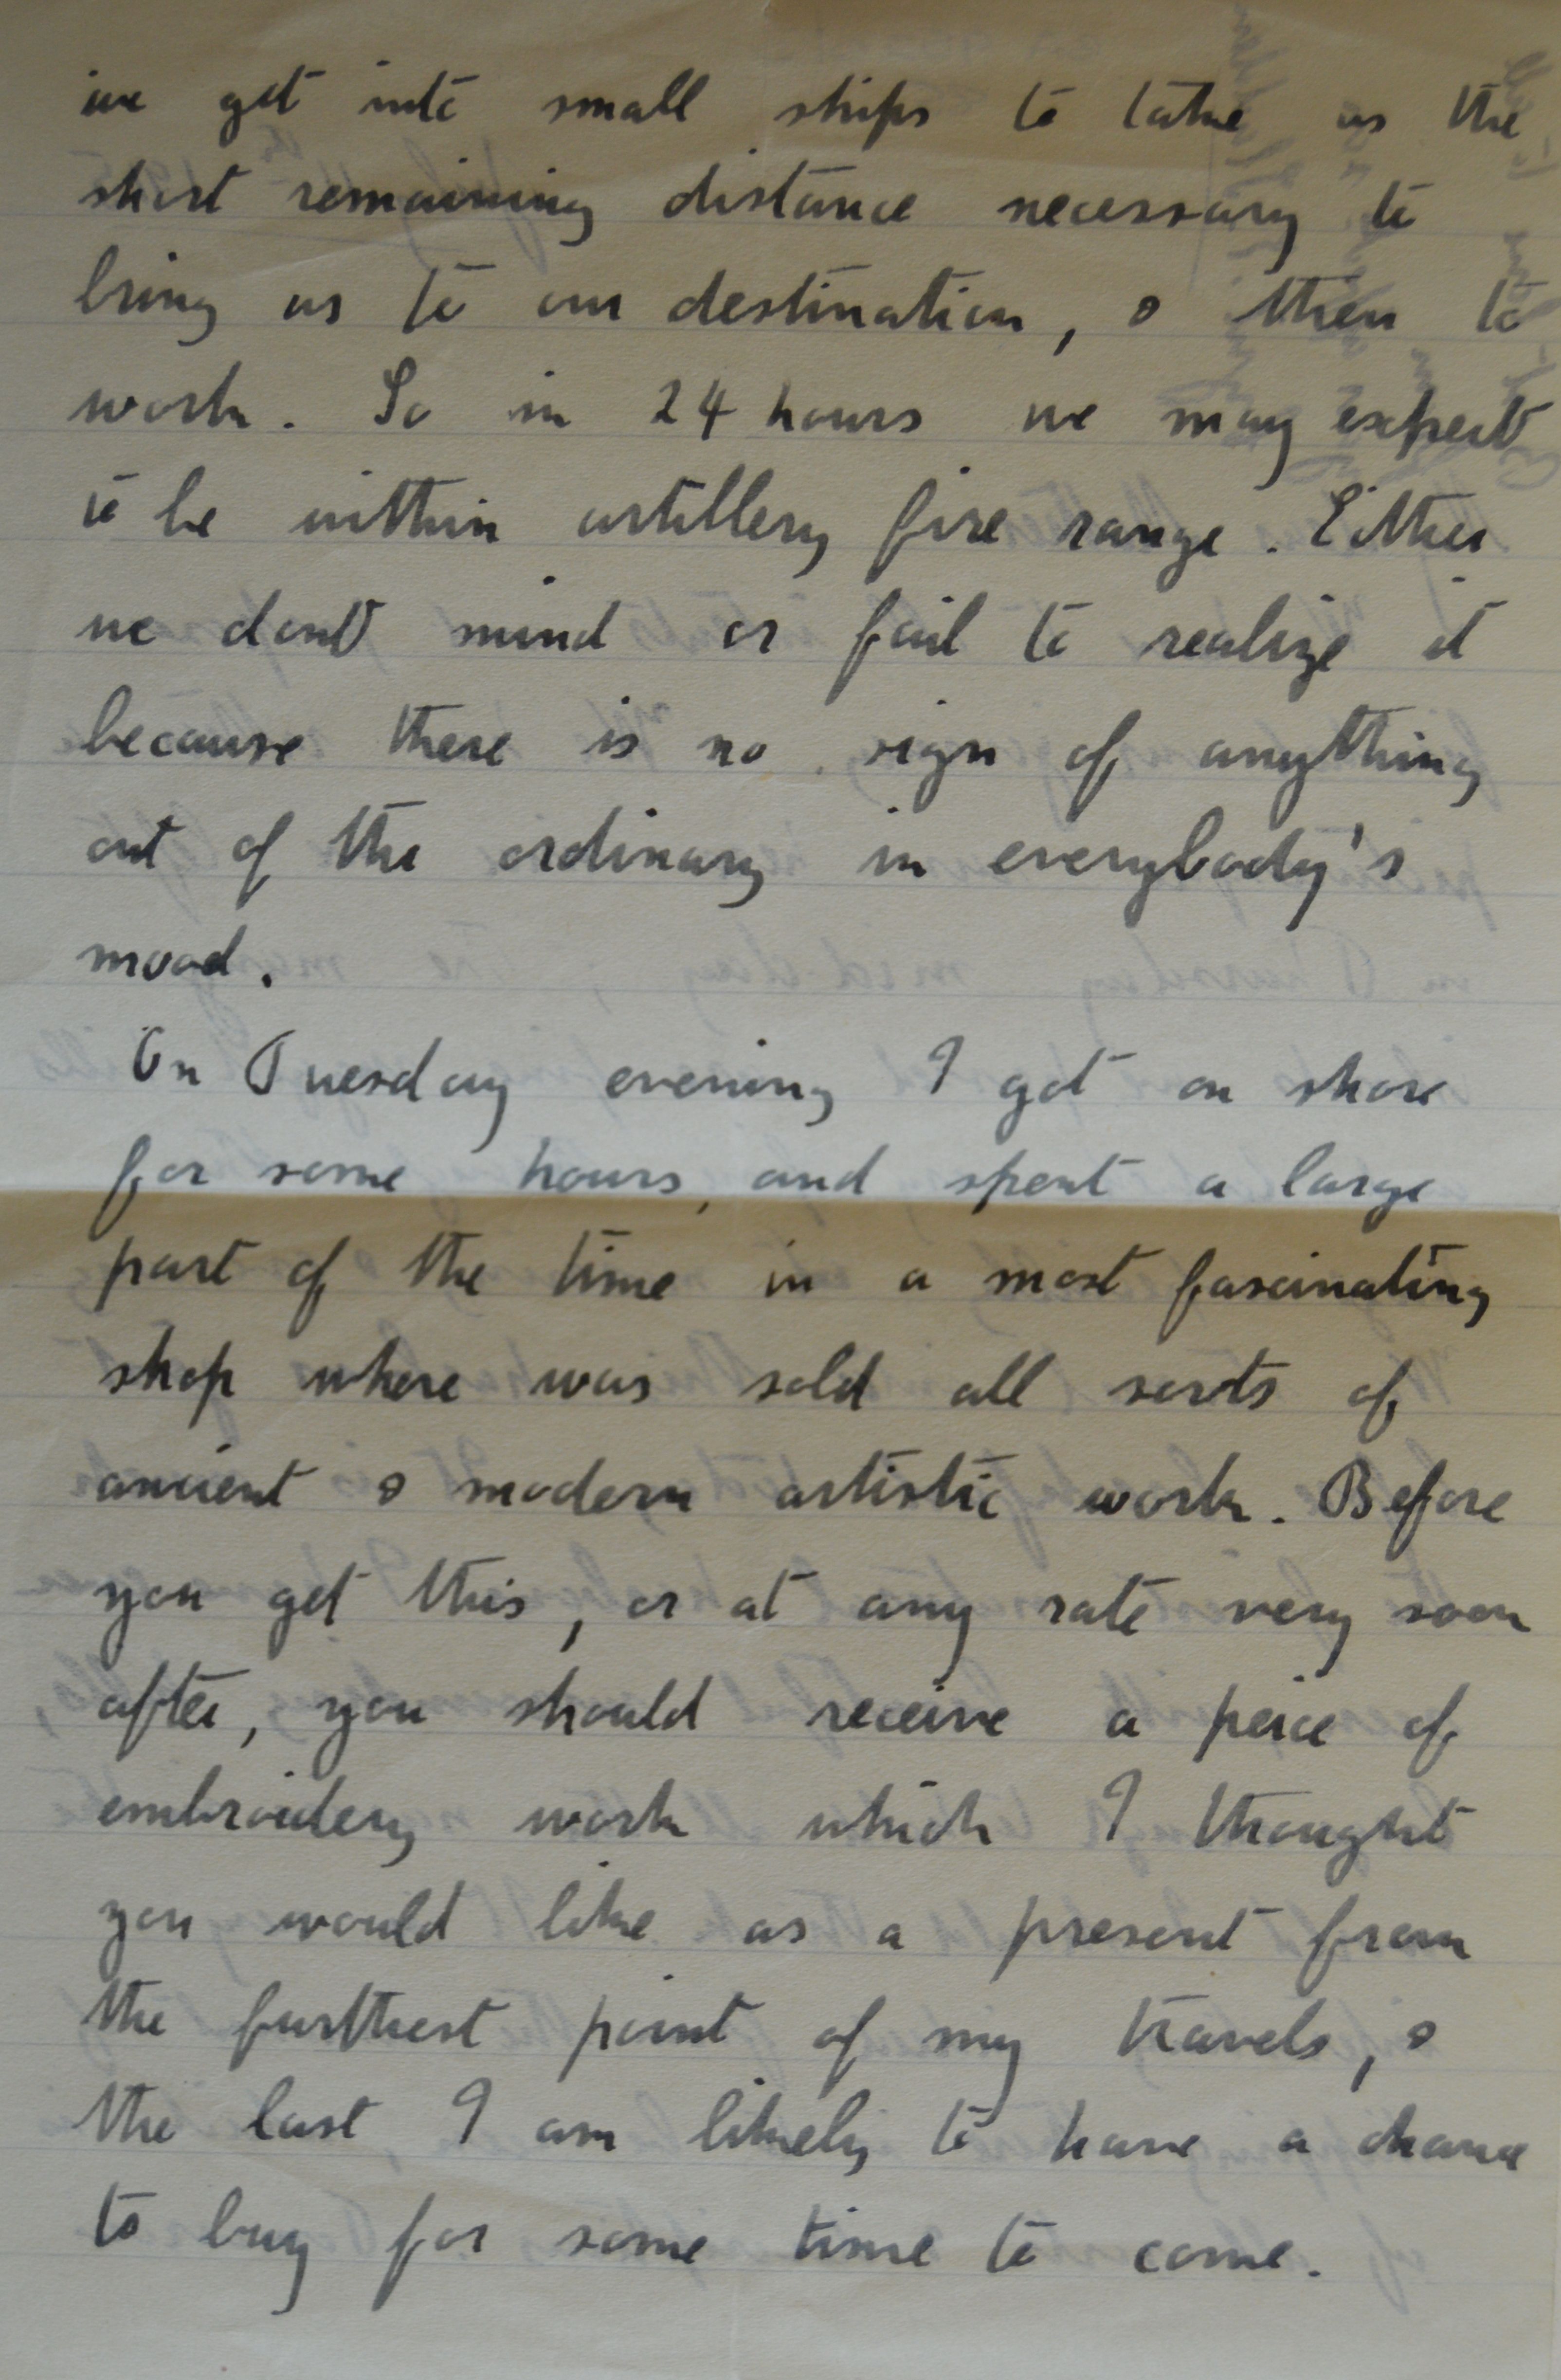 we get into small ships to take us the
short remaining distance necessary to
bring us to our destination, & then to
work. So in 24 hours we may expect
to be within artillery fire range. Either
we dont mind or fail to realize it
because there is no sign of anything
out of the ordinary in everybody's
mood.
On Tuesday evening I got on shore
for some hours, and spent a large
part of the time in a most fascinating
shop where was sold all sorts of
ancient & modern artistic work. Before
you get this, or at any rate very soon
after, you should receive a peice of
embroidery work which I thought
you would like as a present from
the furthest point of my travels, &
the last I am likely to have a chance
to buy for some time to come.